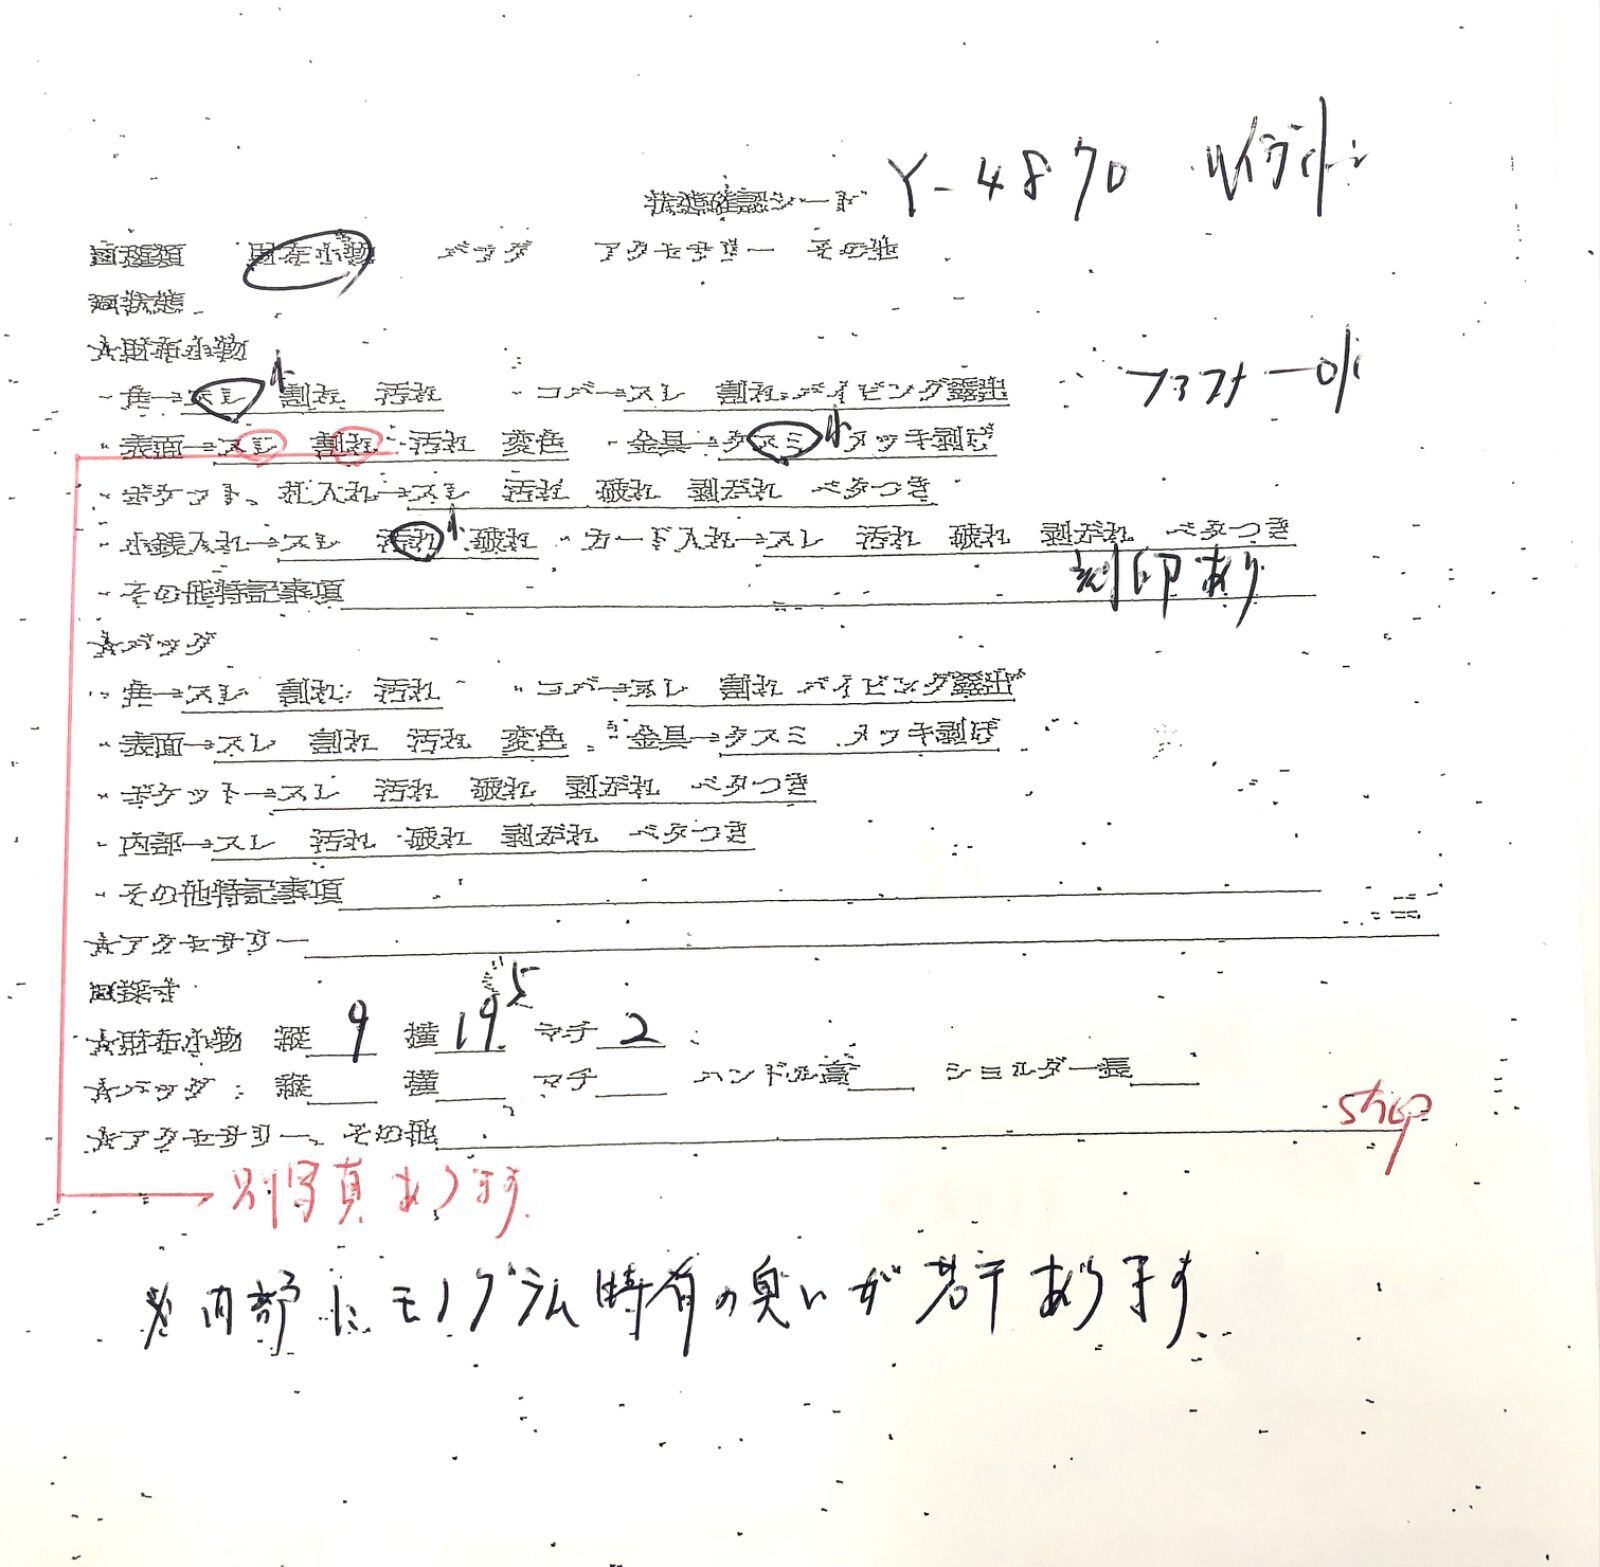 状態確認シート Y-4870
■種類 財布小物 バッグ アクセサリー その他
■状態
☆財布小物
・角→スレ 小 割れ 汚れ ・コバ→スレ 割れ パイピング露出
ファスナー
・表面→スレ 割れ 汚れ 変色 ・金具→クスミ 小 メッキ剥げ
・ポケット、札入れ→スレ 汚れ 破れ 剥がれ ベタつき
・小銭入れ→スレ 汚れ 小 破れ ・カード入れ→スレ 汚れ 破れ 剥がれ ベタつき
・その他特記事項 刻印あり
☆バッグ
・角→スレ 割れ 汚れ ・コバ→スレ 割れ パイピング露出
・表面→スレ 割れ 汚れ 変色 ・金具→クスミ メッキ剥げ
・ポケット→スレ 汚れ 破れ 剥がれ ベタつき
・内部→スレ 汚れ 破れ 剥がれ ベタつき
・その他特記事項
☆アクセサリー
■採寸
☆財布小物 縦 9 横 19.5 マチ 2
☆バッグ 縦 横 マチ ハンドル高 ショルダー長
☆アクセサリー、その他
別写真あります
※内部にモノグラム特有の臭いが若干あります